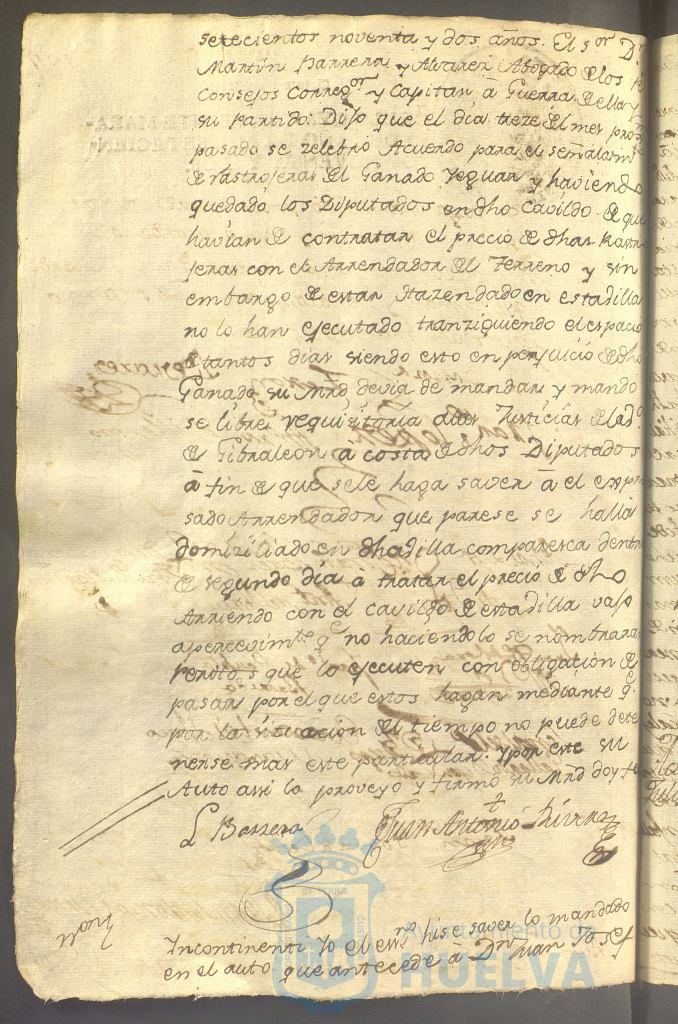 setecientos noventa y dos años. El sor Dn
Martin Barrera, y Alvarez Abogado de los Rs
Consejos Corregor y Capitan â Guerra de ella y
su Partido: Dijo que el dia treze del mes proxo
pasado se zelebró Acuerdo para el señalamto
de rastrojeras del Ganado Yeguar y haviendo
quedado los Diputados en dho Cavildo de que
havian de contratar el precio de dhas Rastro
jeras con el Arrendador del Terreno y sin
embargo de estar Hazendado en esta dilla
no lo han ejecutado tranziguiendo el espacio
de tantos dias siendo esto en perjuicio de dho
Ganado, su Mrd devia de mandar y mando
se libre requizitoria a las Justicias de la va
de Gibraleon â costa de dhos Diputados
â fin de que se le haga saver â el expre
sado Arrendador que parese se halla
domiziliado en dha dilla comparesca dentro
de segundo dia â tratar el precio de dho
Arriendo con el cavildo de esta dilla vajo
apercevimto qe no haciendolo se nombraran
Peritos que lo ejecuten con obligacion de
pasar por el que estos hagan mediante qe
por la situacion del tiempo no puede dete
nerse mas este particular. Y por este su
Auto assi lo proveyo y firmó su Mrd doy fe
L Barrera
Juan Antonio Rivera
Notn
Incontinenti Yo el essno hise saver lo mandado
en el auto que antecede â Dn Juan Josef
Ayuntamiento de
HUELVA